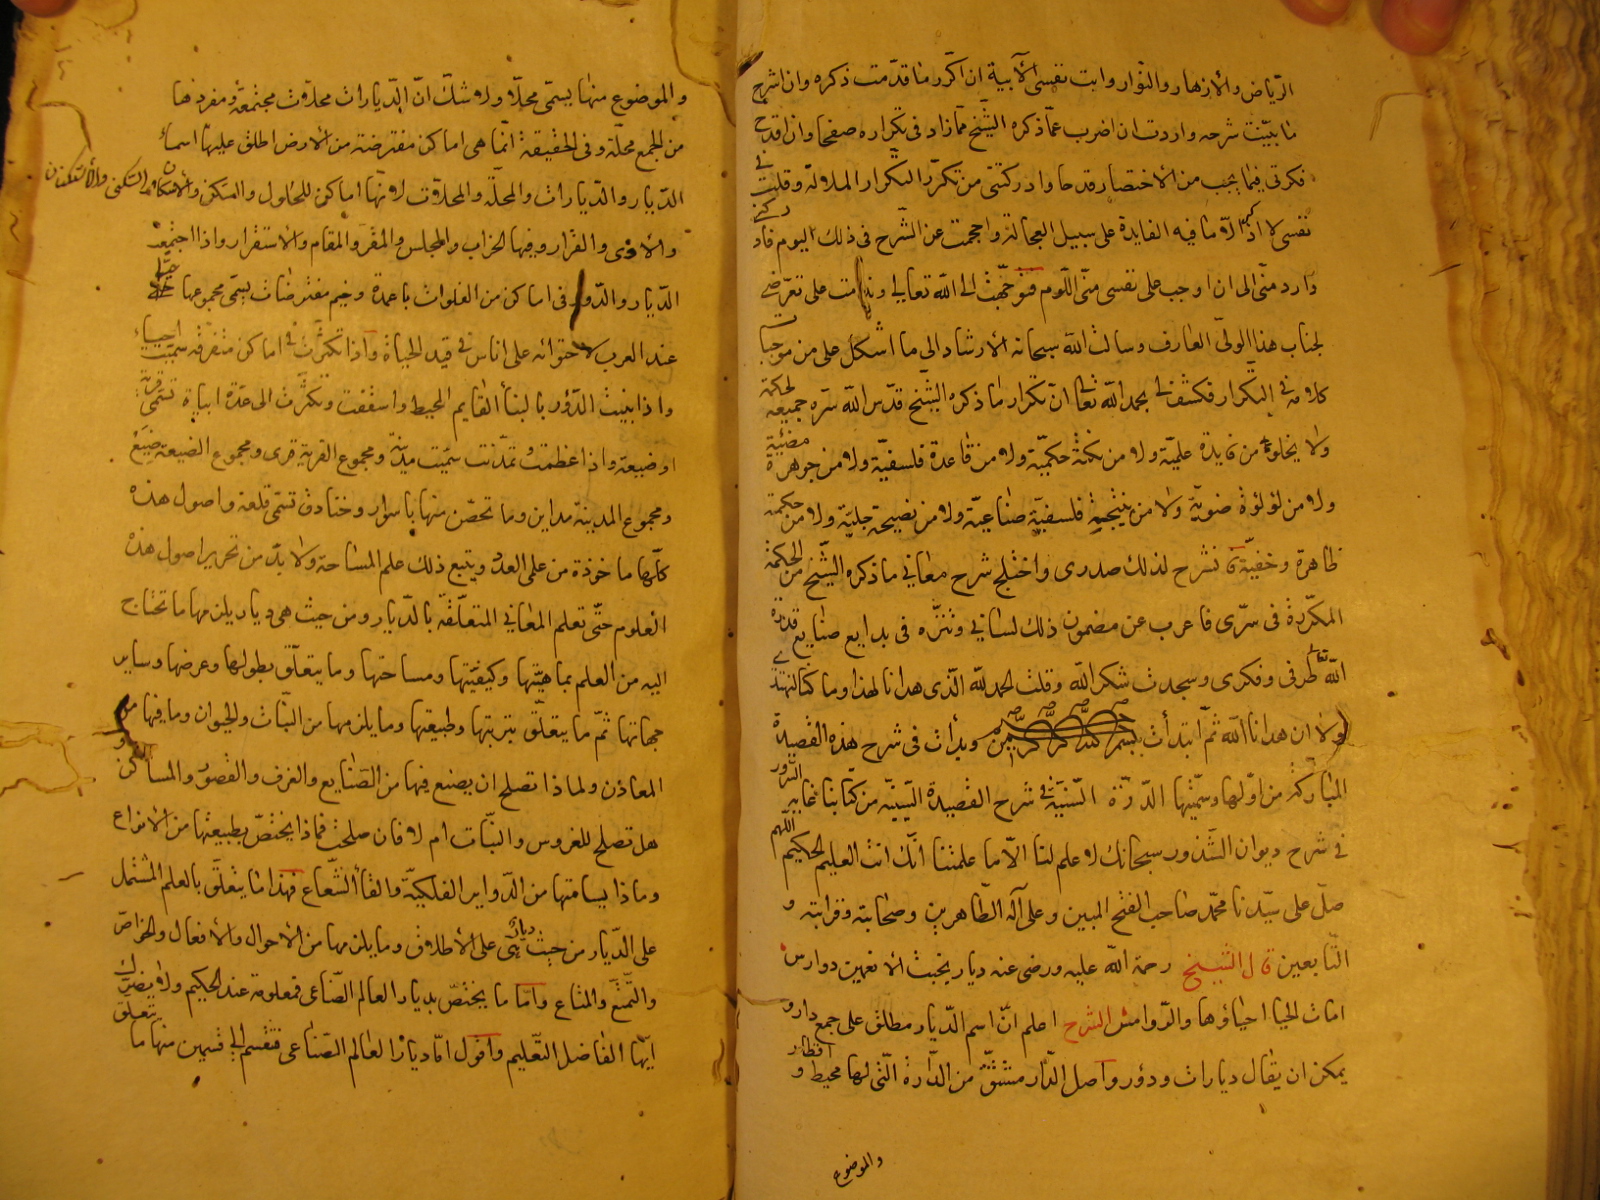 الرياض والازهار والنوار وابت نفسى الآبية ان اكرر ما قدمت ذكره وان اشرح
ما بينت شرحه واردت ان اضرب عما ذكره الشيخ مما زاد فى تكراره صفحا وان اقدح
فكرتى فيما يجب من الاختصار قدحا وادركتنى من تكرر التكرار الملالة وقلت فى
نفسى لا اذكر الا ما فيه الفايدة على سبيل العجالة واحجمت عن الشرح فى ذلك اليوم
وارد منى الى ان اوجب على نفسى منى اللوم فتوجهت الى الله تعالى وندمت على تعرضى
لجناب هذا الولى العارف وسالت الله سبحانه الارشاد الى ما اشكل على من موجبات
كلامه فى التكرار فكشف لى بحمد الله تعالى ان تكرار ما ذكره الشيخ قدس الله سره جميعه لحكمة
ولا يخلو من فايدة علمية ولا من نكتة حكمية ولا من قاعدة فلسفية ولا من جوهرة مضيئة
ولا من لؤلؤة ضوية ولا من نتيجة فلسفية صناعية ولا من نصيحة جلية ولا من حكمة
ظاهرة وخفية فانشرح لذلك صدرى واختلج شرح معانى ما ذكره الشيخ من الحكمة
المكررة فى سرى فاعرب عن مضمون ذلك لسانى وتنزه فى بدايع صنايع قدرة
الله تعالى طرفى وفكرى وسجدت شكر الله وقلت الحمد لله الذى هدانا لهذا وما كنا لنهتدى
لولا ان هدانا الله ثم ابتدأت وبدأت فى شرح هذه القصيدة
المباركة من اولها وسميتها الدرة السنية فى شرح القصيدة السينية من كتابنا غاية السرور
فى شرح ديوان الشذور سبحانك لا علم لنا الا ما علمتنا انك انت العليم الحكيم اللهم
صل على سيدنا محمد صاحب الفتح المبين وعلى آله الطاهرين وصحابته وقرابته و
التابعين قال الشيخ رحمة الله عليه ورضى عنه ديار بخبت الانعمين دوارس
امات الحيا احياؤها والروامس الشرح اعلم ان اسم الديار مطلق على جمع دار و
يمكن ان يقال ديارات ودؤر واصل الدار مشتق من الدارة التى لها محيط و اقطار
والموضوع
والموضوع منها يسمى محلا ولا شك ان الديارات محلات مجتمعة ومفردها
من الجمع محلة وفى الحقيقة انما هى اماكن مفترضة من الارض اطلق عليها اسماء
الديار والديارات والمحلة والمحلات لانها اماكن للحلول والمتكن والامكان والسكنى
والاوى والقرار وفيها الخراب والمجلس والمقر والمقام والاستقرار واذا اجتمعت
الديار والدور فى اماكن من الفلوات باعمدة وخيم مفترضات يسمى مجموعها حيا
عند العرب لاحتوائه على اناس فى قيد الحياة واذا تكثرت فى اماكن متفرقه سميت احياء
واذا بنيت الدؤر بالبنأ القايم المحيط واسقفت وتكثرت الى عدة ابياة تسمى قرية
او ضيعة واذا عظمت وتمدنت سميت مدينة ومجموع القرية قرى ومجموع الضيعة ضيع
ومجموع المدينة مداين وما تحصن منها باسوار وخنادق تسمى قلعة واصول هذه
كلها ماخوذة من على العدد ويتبع ذلك علم المساحة ولا بد من تحرير اصول هذه
العلوم حتى تعلم المعانى المتعلقة بالديار ومن حيث هى ديار يلزمها ما تحتاج
اليه من العلم بماهيتها وكيفيتها ومساحتها وما يتعلق بطولها وعرضها وساير
جهاتها ثم ما يتعلق بتربتها وطبيعتها وما يلزمها من النبات والحيوان وما فيها من
المعادن ولماذا تصلح ان يصنع فيها من الصنايع والغرف والقصور والمساكن
هل تصلح للغروس والنبات ام لا فان صلحت فماذا يختص بطبيعتها من الانواع
وماذا يسامتها من الدواير الفلكية والقأ الشعاع فهذا ما يتعلق بالعلم المشتمل
على الديار من حيث ديار على الاطلاق وما يلزمها من الاحوال والافعال والخواص
والتمتع والمتاع واما ما يختص بديار العالم الصناعى فمعلومة عند الحكيم ولا يضرك
ايها الفاضل التعليم واقول اما ديار العالم الصناعى فتقسم الى قسمين منها ما يتعلق